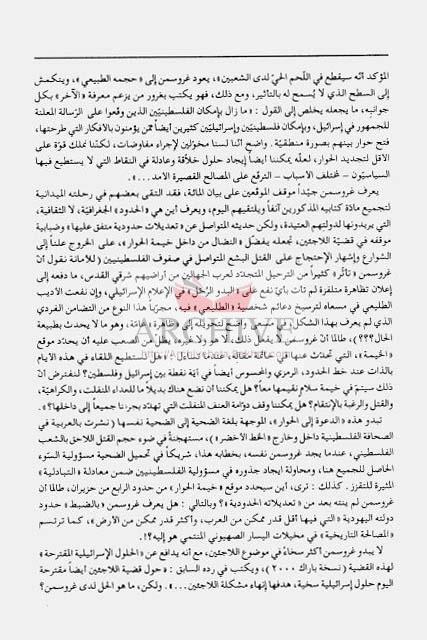 المؤكد أنّه سيقطع في اللّحم الحيّ لدى الشعبين»، يعود غروسمن إلى «حجمه الطبيعي»، وينكمش
إلى السطح الذي لا يُسمح له بالتأثير، ومع ذلك، فهو يكتب بغرور من يزعم معرفة «الآخر» بكل
جوانبه، ما يجعله يخلص إلى القول: «ما زال بإمكان الفلسطينيّين الذين وقّعوا على الرّسالة المعلنة
للجمهور في إسرائيل، وبإمكان فلسطينيّين وإسرائيليّين كثيرين أيضاً ممّن يؤمنون بالأفكار التي طرحتها،
فتح حوار بينهم بصورة منطقيّة. واضح أنّنا لسنا مخوّلين لإجراء مفاوضات، لكنّنا نملك قوّة على
الاقل لتجديد الحوار، لعلّه يمكننا أيضاً إيجاد حلول خلاّقة وعادلة في النقاط التي لا يستطيع فيها
السياسيّون - لمختلف الاسباب - الترفّع على المصالح القصيرة الامد...».
يعرف غروسمن جيّداً موقف الموقّعين على بيان المائة، فقد التقى بعضهم في رحلته الميدانية
لتجميع مادّة كتابيه المذكورين آنفاً ويلتقيهم اليوم، ويعرف أين هي «الحدود» الجغرافيّة، لا الثقافية،
التي يريدونها لدولتهم العتيدة، ولكن حديثه المتواصل عن «تعديلات حدودية متفق عليها» وضبابية
موقفه في قضيّة اللاجئين، تجعله يفضّل «النضال من داخل خيمة الحوار»، على الخروج علناً إلى
الشوارع وإشهار الإحتجاج على القتل البشع المتواصل في صفوف الفلسطينيين (للأمانة نقول أنّ
غروسمن «تأثّر» كثيراً من الترحيل المتجدّد لعرب الجهالين من أراضيهم شرقي القدس، ما دفعه إلى
إعلان تظاهرة متلفزة لم تأت بأيّ نفع على «البدو الرّحّل» في الإعلام الإسرائيلي، وإن نفعت الأديب
الطليعي في مسعاه لترسيخ دعائم شخصية «الطليعي» فيه، مجرّباً هذا النوع من التضامن الفردي
الذي لم يعرف بهذا الشكل واضع لتحويله إلى ظاهرة عامّة، وهو ما لا يحدث بطبيعة
الحال؟؟؟)، طالما أنّ غروسمن لا يفعل ذلك، لا هو ولا غيره، يظلّ من الصعب عليه أن يحدّد موقع
«الخيمة»، التي تحدّث عنها في خاتمة مقاله، عندما تساءل: «هل نستطيع اللقاء في هذه الايام
بالذات عند خط الحدود، الرمزي والمحسوس أيضاً في أيّة نقطة بين إسرائيل وفلسطين؟ لنفترض أنّ
ذلك سيتمّ في خيمة سلام نقيمها معاً؟ هل يمكننا أن نضع هناك بديلاً ما للعداء المنفلت، والكراهيّة،
والقتل والرغبة بالإنتقام؟ هل يمكننا وقف دوّامة العنف المنفلت التي تهدّد بجرّنا جميعاً إلى داخلها؟».
تبدو هذه «الدعوة إلى الحوار»، الموجهة بلغة الضحية إلى الضحية نفسها (نشرت بالعربية في
الصحافة الفلسطينية داخل وخارج «الخطّ الأخضر»)، مستهجنةً في ضوء حجم القتل اللاحق بالشعب
الفلسطيني، عندما يجد غروسمن نفسه، بخطابه هذا، شريكاً في تحميل الضحية مسؤولية السّوء
الحاصل للجميع هنا، ومحاولة إيجاد جذور في مسؤولية الفلسطينيين ضمن معادلة «التبادلية»
المثيرة للتقزز. كذلك: ترى، أين سيحدد موقع «خيمة الحوار» من حدود الرابع من حزيران، طالما أن
غروسمن لم ينته بعد من «تعديلاته الحدودية»؟ وبالتالي: هل يعرف غروسمن «بالضبط» حدود
دولته اليهودية «التي فيها أقل قدر ممكن من العرب، وأكثر قدر ممكن من الأرض»، كما ترتسم
«المصالحة التاريخية» في مخيلات اليسار الصهيوني المنتمي هو إليه؟!.
لا يبدو غروسمن أكثر سخاءً في موضوع اللاجئين، مع أنه يدافع عن «الحلول الإسرائيلية المقترحة»
لهذه القضية (نسخة باراك ٢٠٠٠)، ويكتب في رده السابق: «حول قضية اللاجئين أيضاً مقترحة
اليوم حلول إسرائيلية سخية، هدفها إنهاء مشكلة اللاجئين...». ولكن، ما هو الحل لدى غروسمن؟
ARCHIVE